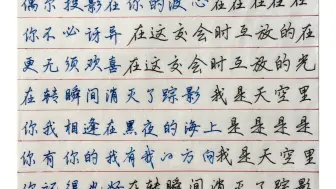 偶尔投影在你的波心在在在在在
你不必讶异在这交会时互放的在
更无须欢喜在这交会时互放的光
在转瞬间消灭了踪影我是天空里
你我相逢在黑夜的海上是是是是
你有你的我有我的方向我是天空里
你记得也好在转瞬间消灭了踪影